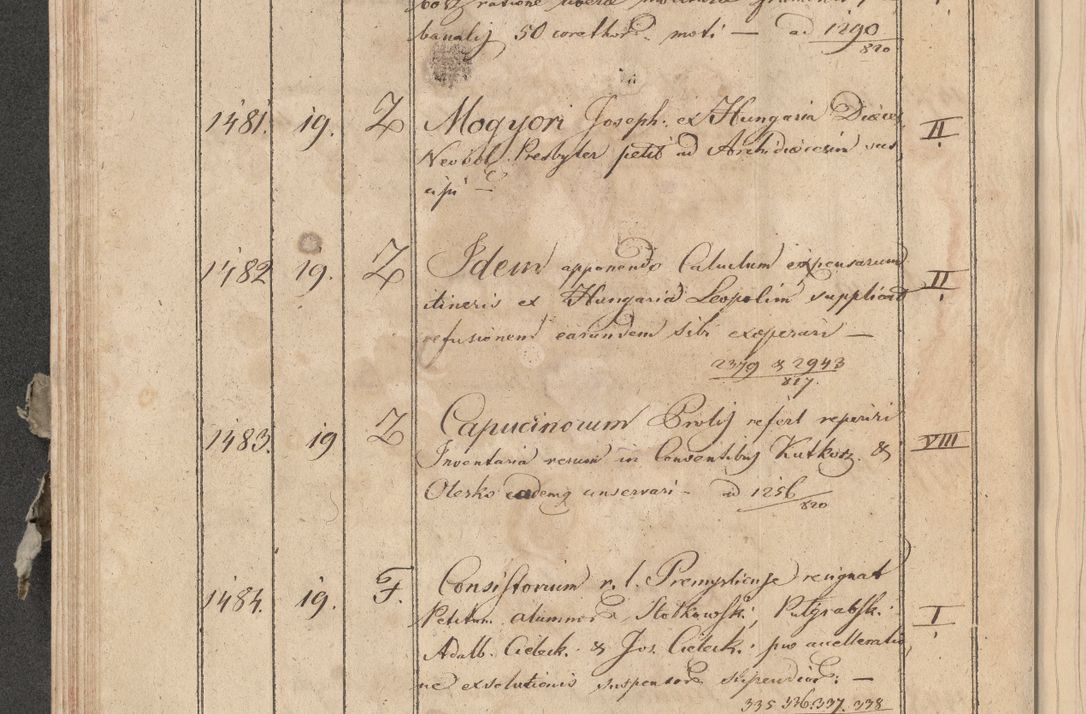 banalij 50 corathor. moti — ad 1290
820
1481. 19. Z Mogyori Joseph. ex Hungaria Dioeces. II.
Presbyter petit ad Archidioecesim sus
cipi —
1482 19. Z Idem apponendo Calculum expensarum II.
itineris ex Hungaria Leopolim supplicat
refusionem earundem sibi
2379 & 2943
817.
1483. 19 Z Capucinorum refert reperiri VIII
Inventaria rerum in Conventibus Kutkorz. &
Olesko eademq unservari - ad 1256
820
1484. 19. F. Consistorium r. l. Premysliense resignat I.
Petitum alumnor. Stotkowski,
Adalb. Cieleck. & Jos. Cieleck. pro accelleratio
ne exsolutionis suspensor. stipendior: —
335 336. 337. 338